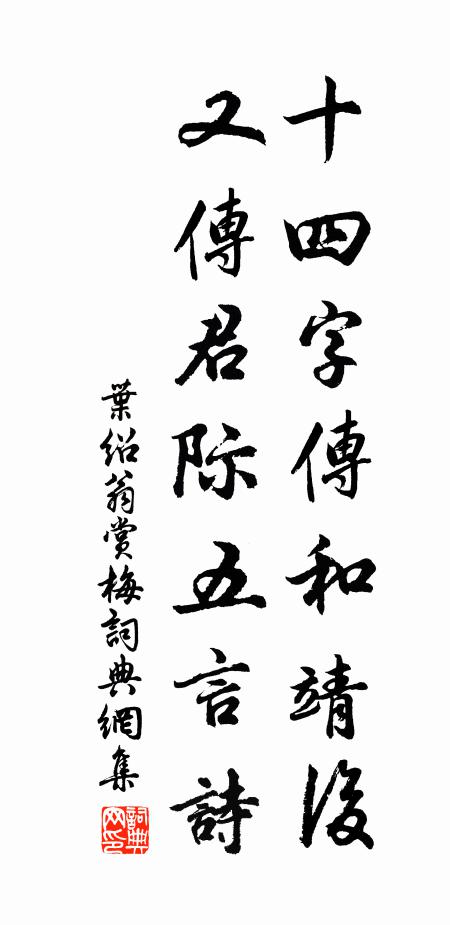 十四字傳和靖後
又傳君際五言詩
葉紹翁賞梅詞典網集
詞典网印